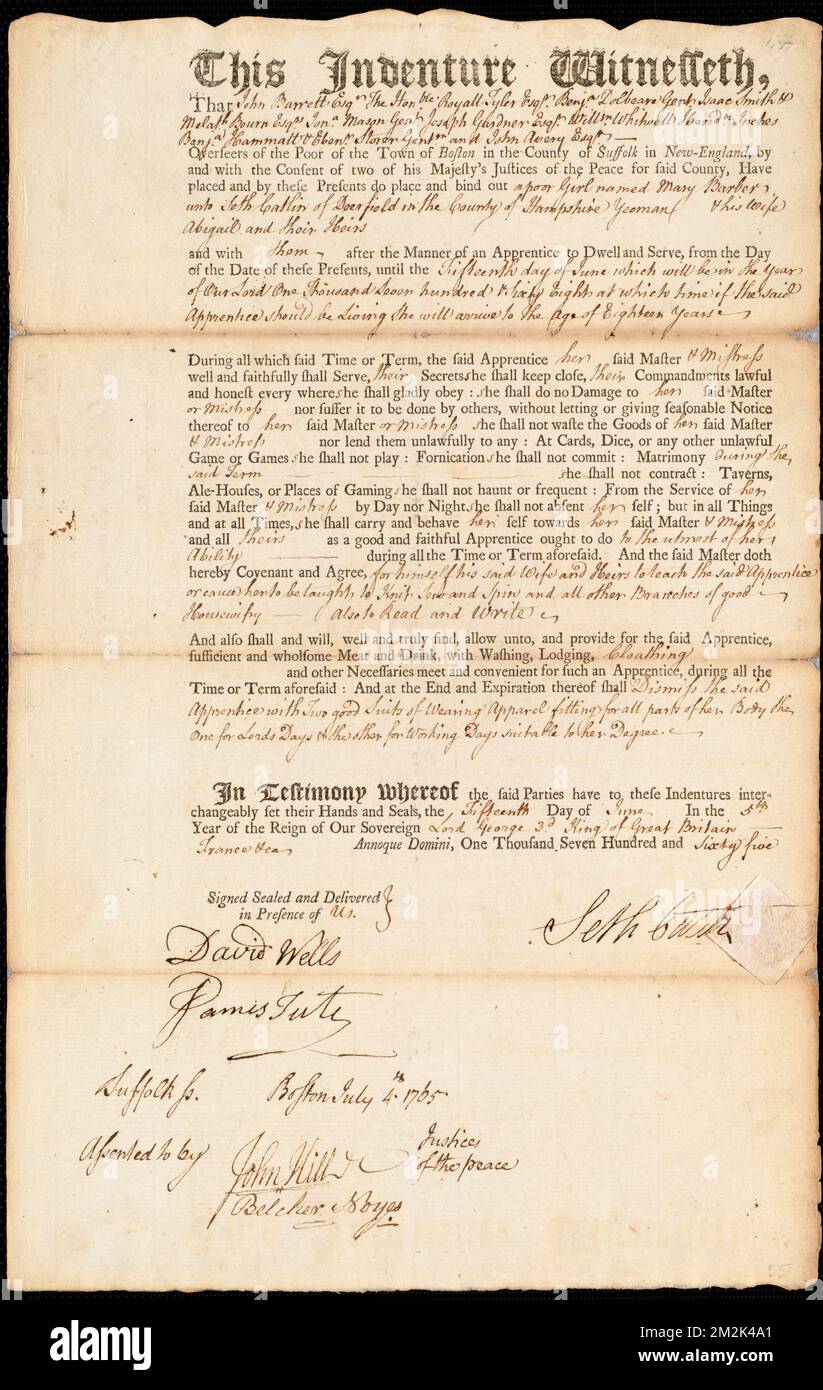 This Indenture Witnesseth,
That John Barrett Esqr The Honble Royall Tyler Esqr Benja Dolbeare Gent Isaac Smith &
Melath Bourn Esqrs Jona Mason Gent Joseph Gardner Esqr Willm Whitwell Hendn Inches
Benja Hammatt & Ebenr Storer Gentn and John Avery Esqr
Overseers of the Poor of the Town of Boston in the County of Suffolk in New-England, by
and with the Consent of two of his Majesty's Justices of the Peace for said County, Have
placed and by these Presents do place and bind out a poor Girl named Mary Barber
unto Seth Catlin of Deerfield in the County of Hampshire Yeoman & his Wife
Abigail and their Heirs
and with them after the Manner of an Apprentice to Dwell and Serve, from the Day
of the Date of these Presents, until the Fifteenth day of June which will be in the Year
of Our Lord One Thousand Seven hundred & Sixty Eight at which time if the said
Apprentice should be Living She will arrive to the Age of Eighteen Years
During all which said Time or Term, the said Apprentice her said Master & Mistress
well and faithfully shall Serve, their Secrets she shall keep close, their Commandments lawful
and honest every where she shall gladly obey : she shall do no Damage to her said Master
or Mistress nor suffer it to be done by others, without letting or giving seasonable Notice
thereof to her said Master or Mistress she shall not waste the Goods of her said Master
& Mistress nor lend them unlawfully to any : At Cards, Dice, or any other unlawful
Game or Games she shall not play : Fornication she shall not commit : Matrimony during the
said Term she shall not contract : Taverns,
Ale-Houses, or Places of Gaming she shall not haunt or frequent : From the Service of her
said Master & Mistress by Day nor Night she shall not absent her self ; but in all Things
and at all Times, she shall carry and behave her self towards her said Master & Mistress
and all theirs as a good and faithful Apprentice ought to do to the utmost of her
Ability during all the Time or Term aforesaid. And the said Master doth
hereby Covenant and Agree, for himself his said Wife and Heirs to teach the said Apprentice
or cause her to be taught to Knit Sew and Spin and all other Branches of good
Housewifry also to Read and Write
And also shall and will, well and truly find, allow unto, and provide for the said Apprentice,
sufficient and wholsome Meat and Drink, with Washing, Lodging, Cloathing
and other Necessaries meet and convenient for such an Apprentice, during all the
Time or Term aforesaid : And at the End and Expiration thereof shall Dismiss the said
Apprentice with Two good Suits of Wearing Apparel fitting for all parts of her Body the
One for Lords Days & the other for Working Days suitable to her Degree.
In Testimony whereof the said Parties have to these Indentures inter-
changeably set their Hands and Seals, the Fifteenth Day of June In the 5th
Year of the Reign of Our Sovereign Lord George 3d King of Great Britain
France &ca Annoque Domini, One Thousand Seven Hundred and Sixty five
Signed Sealed and Delivered
in Presence of Us.
Seth Catlin
David Wells
James Tute
Suffolk ss. Boston July 4th 1765.
Assented to by John Hill Justices
of the peace
Belcher Noyes
alamy
Image ID: 2M2K4A1
www.alamy.com